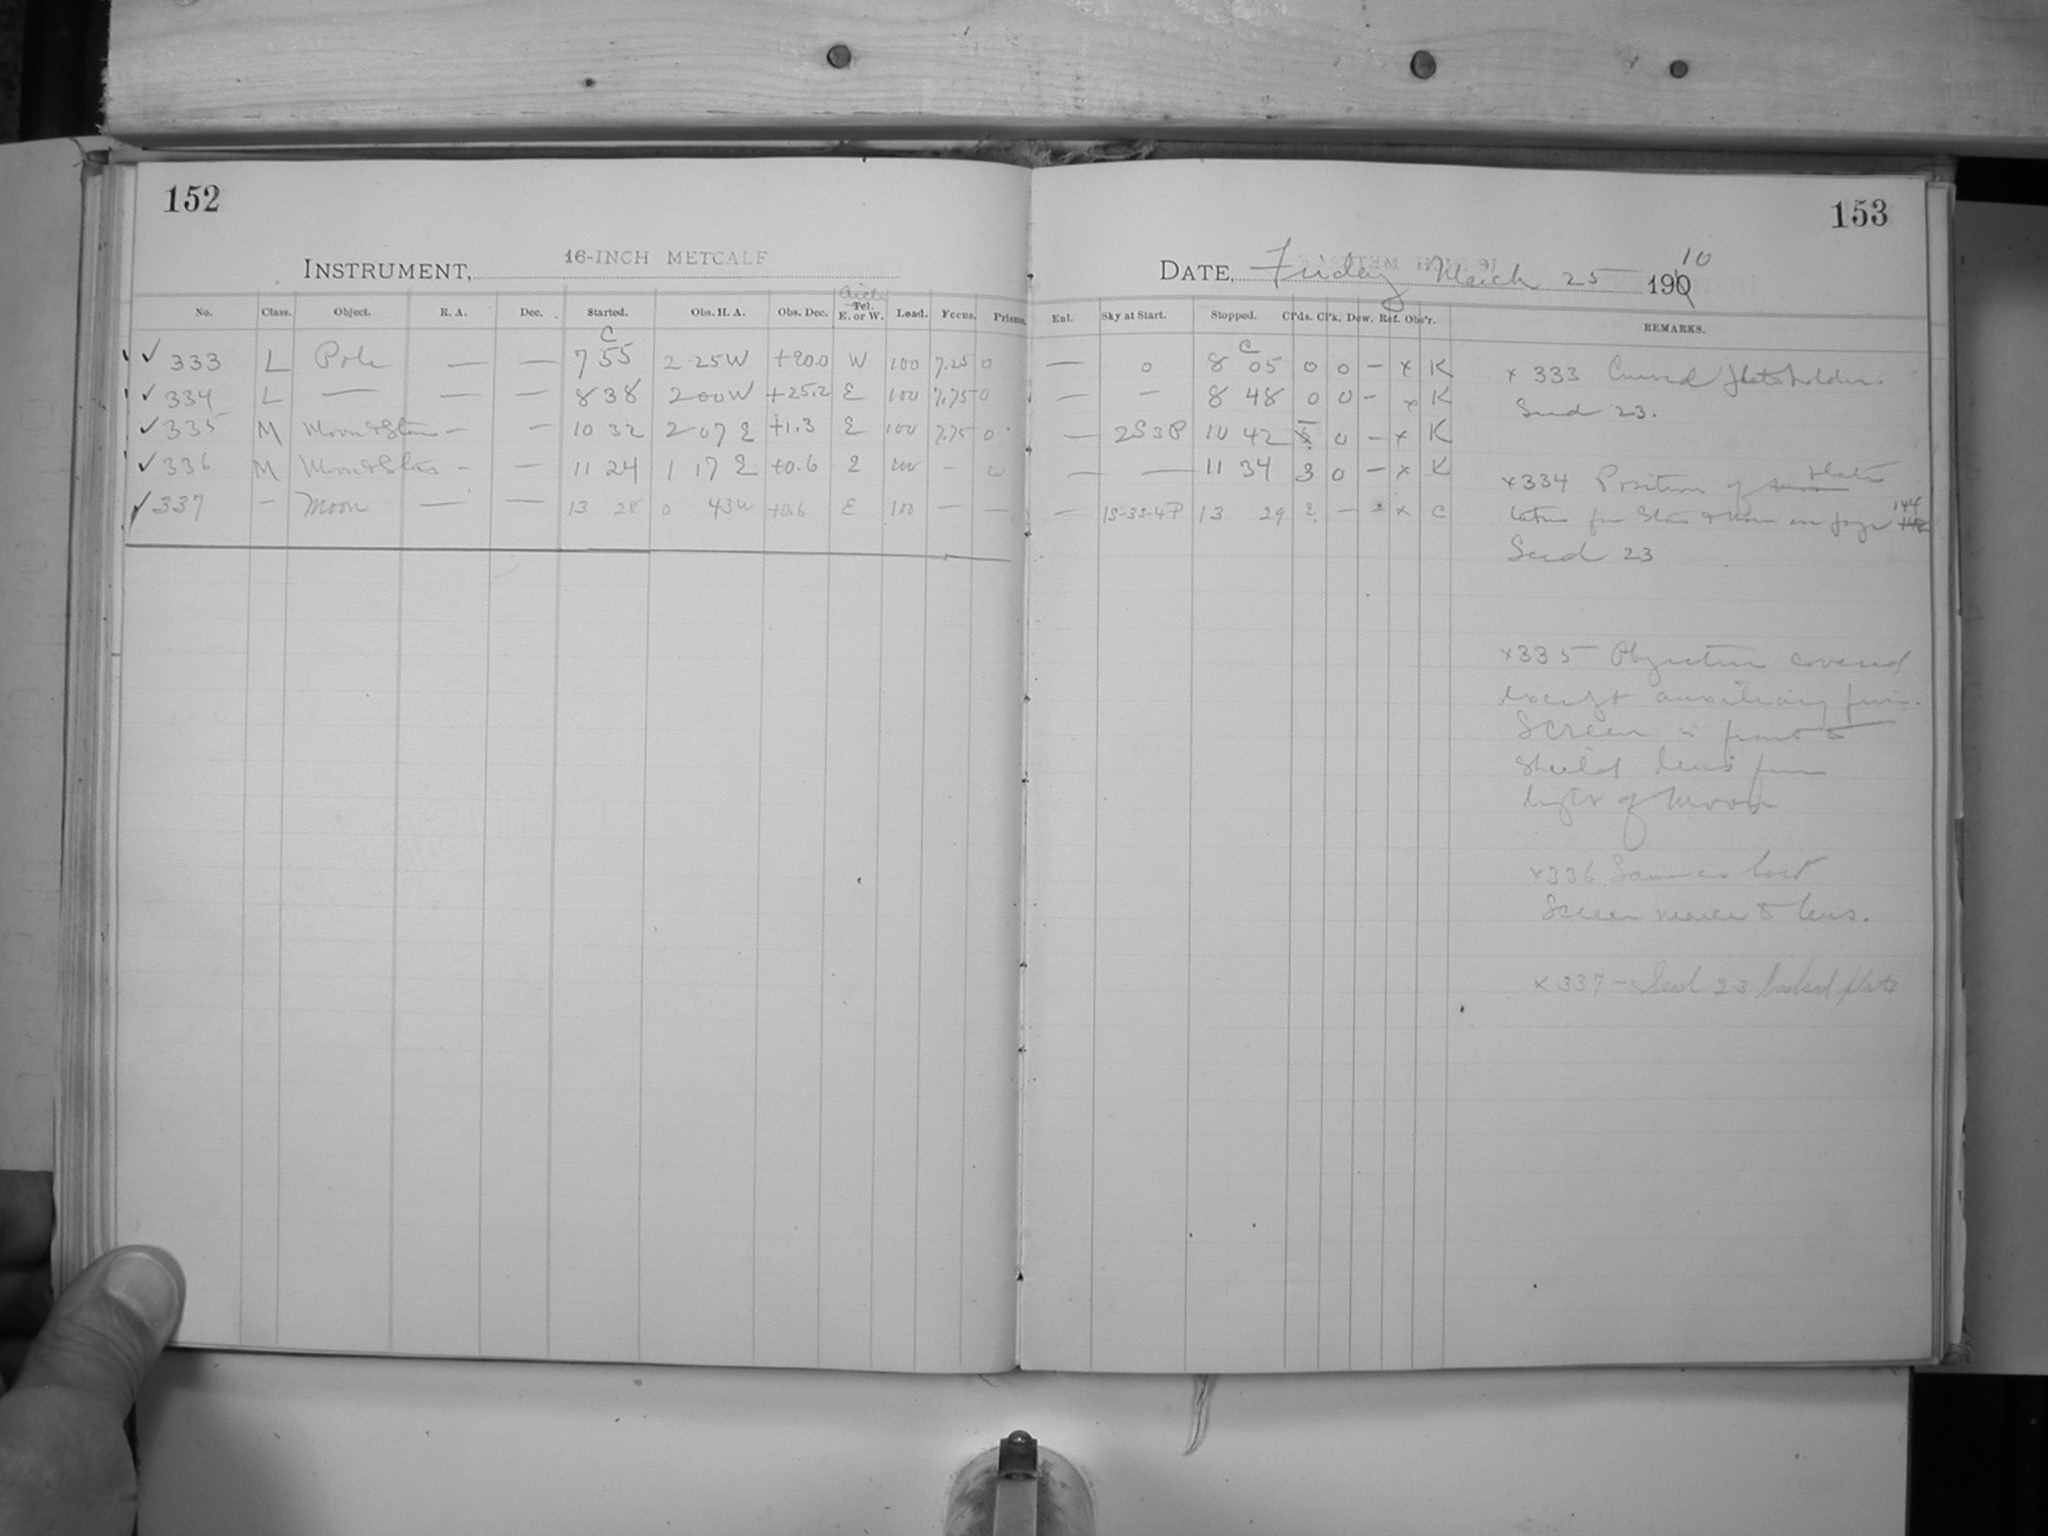 152
INSTRUMENT, 16-INCH METCALF
No. Class. Object. R. A. Dec. Started. Obs. H. A. Obs. Dec. Circle Tel. E. or W. Load. Focus. Prisms.
✓ 333 L Pole — — C 7 55 2 25 W +20.0 W 100 7.25 0
✓ 334 L — — — 8 38 2 00 W +25.2 E 100 7.75 0
✓ 335 M Moon & Stars — — 10 32 2 07 E +1.3 E 100 7.75 0
✓ 336 M Moon & Stars — — 11 24 1 17 E +0.6 E 100 —
✓ 337 — Moon — — 13 28 0 43 W +0.6 E 100 — —
153
DATE, Friday March 25 1910
Enl. Sky at Start. Stopped. Cl'ds. Cl'k. Dew. Ref. Obs'r. REMARKS.
— 0 C 8 05 0 0 — x K
— — 8 48 0 0 — x K
— 2S 3P 10 42 0 — x K
— — 11 34 3 0 — x K
— 1S-3S-4P 13 29 2 — x C
x 333 Curved plate holder
Seed 23.
x 334 Position of plate
taken for Stars & Moon on page 144
Seed 23
x 335 Objective covered
except auxiliary
Screen in front to
shield lens from
light of Moon
x 336 Same as last
Screen nearer to lens.
x 337 — Seed 23 backed plate